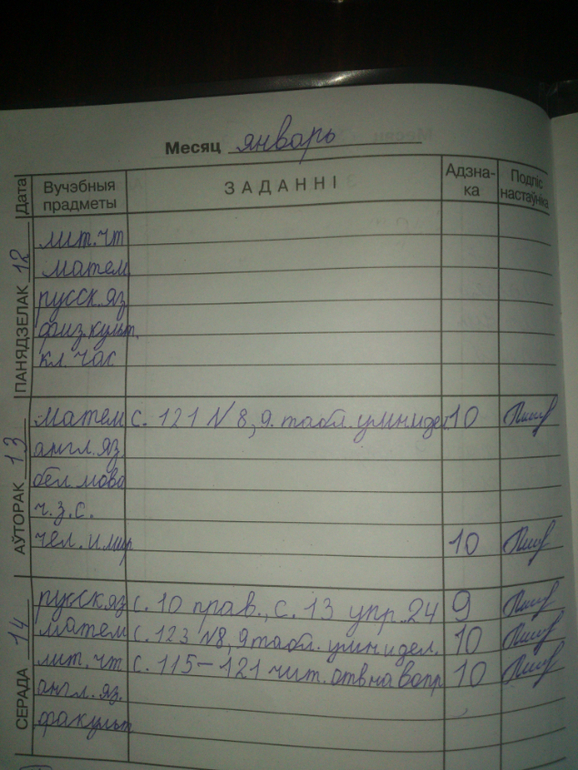 Месяц январь
Дата Вучэбныя прадметы ЗАДАННІ Адзна-ка Подпіс настаўніка
ПАНЯДЗЕЛАК 12
лит. чт
матем
русск. яз
физкульт.
кл. час
АЎТОРАК 13
матем с. 121 №8, 9. табл. умн и дел 10
англ. яз.
бел. мова
ч. з. с.
чел. и мир 10
СЕРАДА 14
русск. яз с. 10 прав., с. 13 упр. 24 9
матем с. 123 №8, 9 табл. умн и дел. 10
лит. чт с. 115-121 чит. отв на вопр 10
англ. яз.
факульт